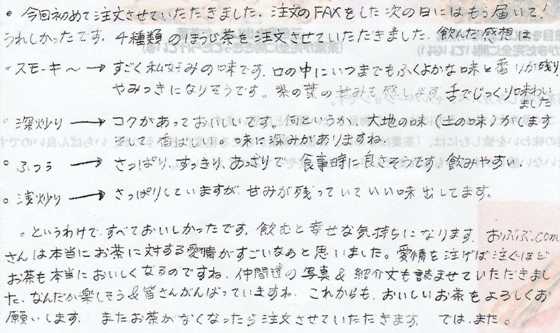 。今回初めて注文させていただきました。注文のFAXをした次の日にはもう届いて！
うれしかったです。4種類のほうじ茶を注文させていただきました。飲んだ感想は
。スモーキー → すごく私好みの味です。口の中にいつまでもふくよかな味と香りが残り
やみつきになりそうです。茶の葉の甘みも感じます。舌でじっくり味わい
ました
。深炒り → コクがあっておいしいです。何というか、大地の味（土の味）がします
そして香ばしい。味に深みがありますね。
。ふつう → さっぱり、すっきり、あっさりで食事時に良さそうです。飲みやすい。
。浅炒り → さっぱりしていますが、甘みが残っていていい味出してます。
。というわけで、すべておいしかったです。飲むと幸せな気持ちになります。おぶぶ.com
さんは本当にお茶に対する愛情がすごいなぁと思いました。愛情も注げば注ぐほど
お茶も本当においしくなるのですね。仲間達の写真＆紹介文も読ませていただきまし
た。なんだか楽しそう＆皆さんがんばっていますね。これからも、おいしいお茶をよろしくお
願いします。またお茶がなくなったら注文させていただきます。では、また。